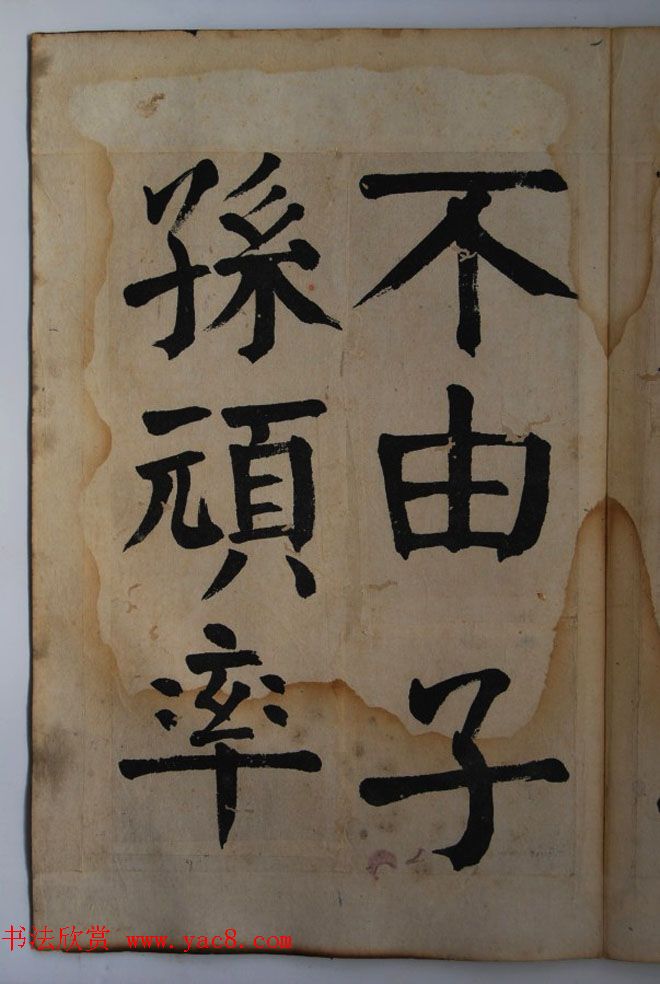 不由子
孫頑率
书法欣赏 www.yac8.com